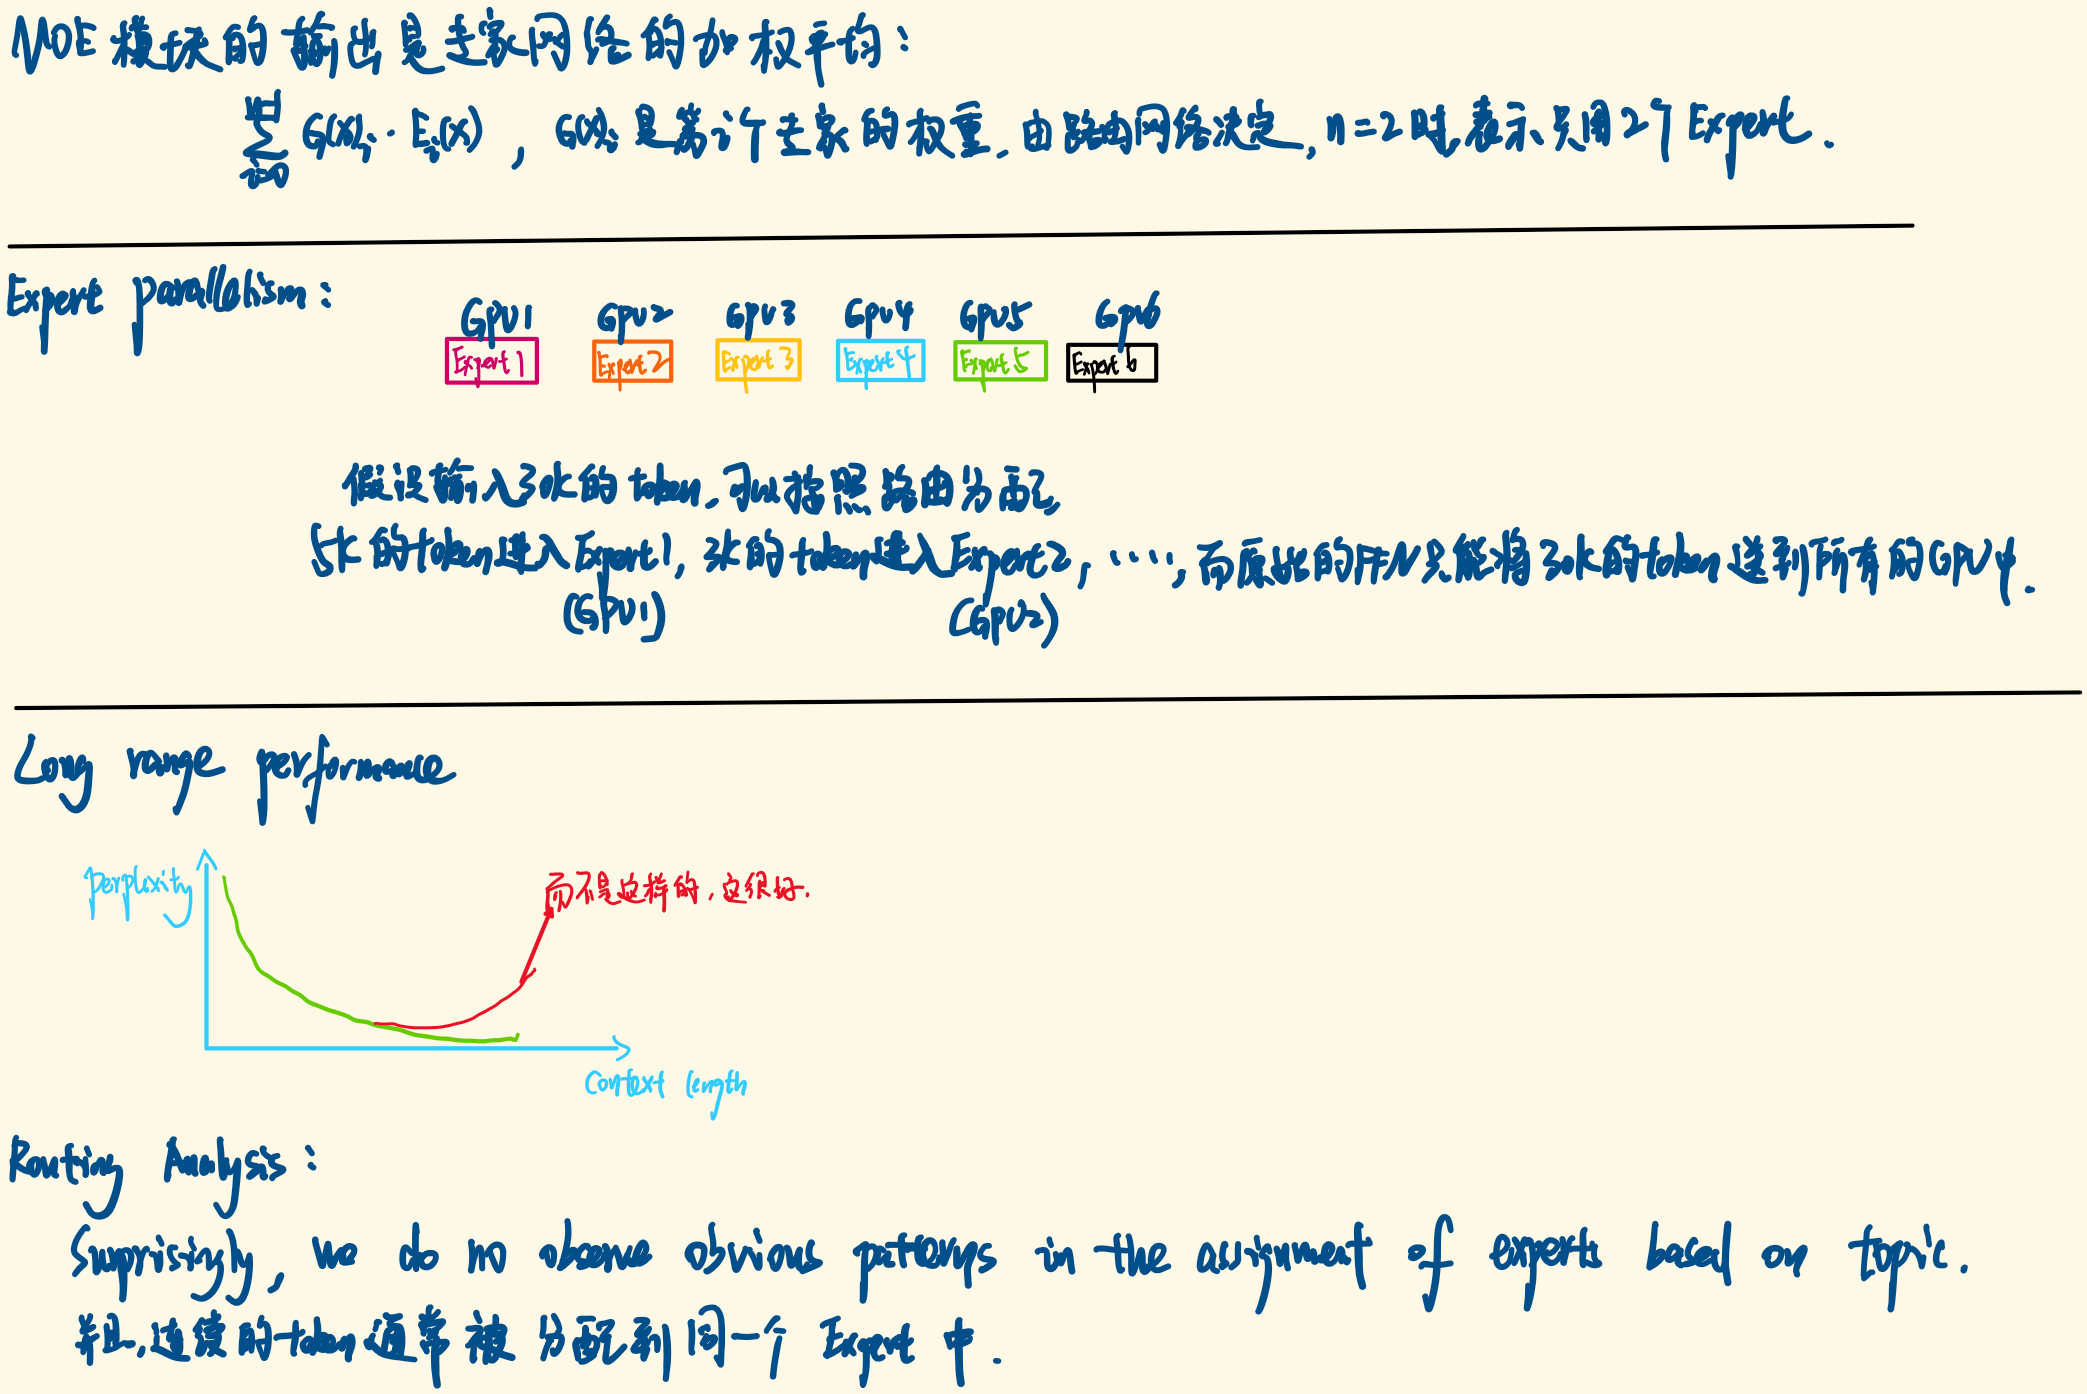 MOE 模块的输出是专家网络的加权平均：
n-1
∑ G(x)i · Ei(x) ，G(x)i 是第i个专家的权重，由路由网络决定，n=2时，表示只用2个Expert.
i=0
Expert parallelism：
GPU1 GPU2 GPU3 GPU4 GPU5 GPU6
Expert1 Expert2 Expert3 Expert4 Expert5 Expert6
假设输入30k的token，可以按照路由分配，
5k的token进入Expert1，3k的token进入Expert2，……，而原始的FFN只能将30k的token送到所有的GPU中.
(GPU1) (GPU2)
Long range performance
perplexity
而不是这样的，这很好.
Context length
Routing Analysis：
Surprisingly, we do no observe obvious patterns in the assignment of experts based on topic.
并且，连续的token通常被分配到同一个 Expert 中.